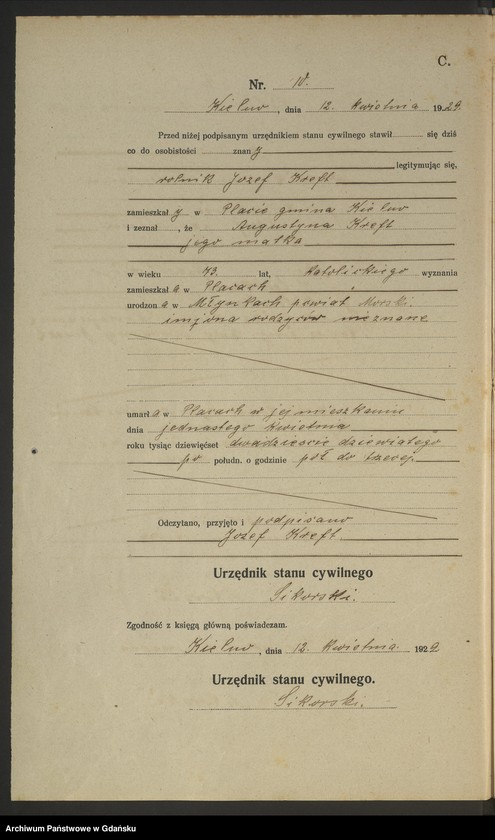 C.
Nr. 10.
Kielno, dnia 12. kwietnia 1929.
Przed niżej podpisanym urzędnikiem stanu cywilnego stawił się dziś
co do osobistości znany
legitymując się,
rolnik Jozef Kreft
zamieszkały w Placie gmina Kielno
i zeznał, że Augustyna Kreft
jego matka
w wieku 73. lat, katolickiego wyznania
zamieszkała w Placach
urodzona w Młynkach powiat Morski.
imiona rodzyców nieznane
umarła w Placach w jej mieszkaniu
dnia jednastego kwietnia
roku tysiąc dziewięćset dwadzieście dziewiątego
po połudn. o godzinie pół do trzecej.
Odczytano, przyjęto i podpisano
Jozef Kreft
Urzędnik stanu cywilnego
Sikorski.
Zgodność z księgą główną poświadczam.
Kielno, dnia 12. kwietnia 1929
Urzędnik stanu cywilnego.
Sikorski.
Archiwum Państwowe w Gdańsku